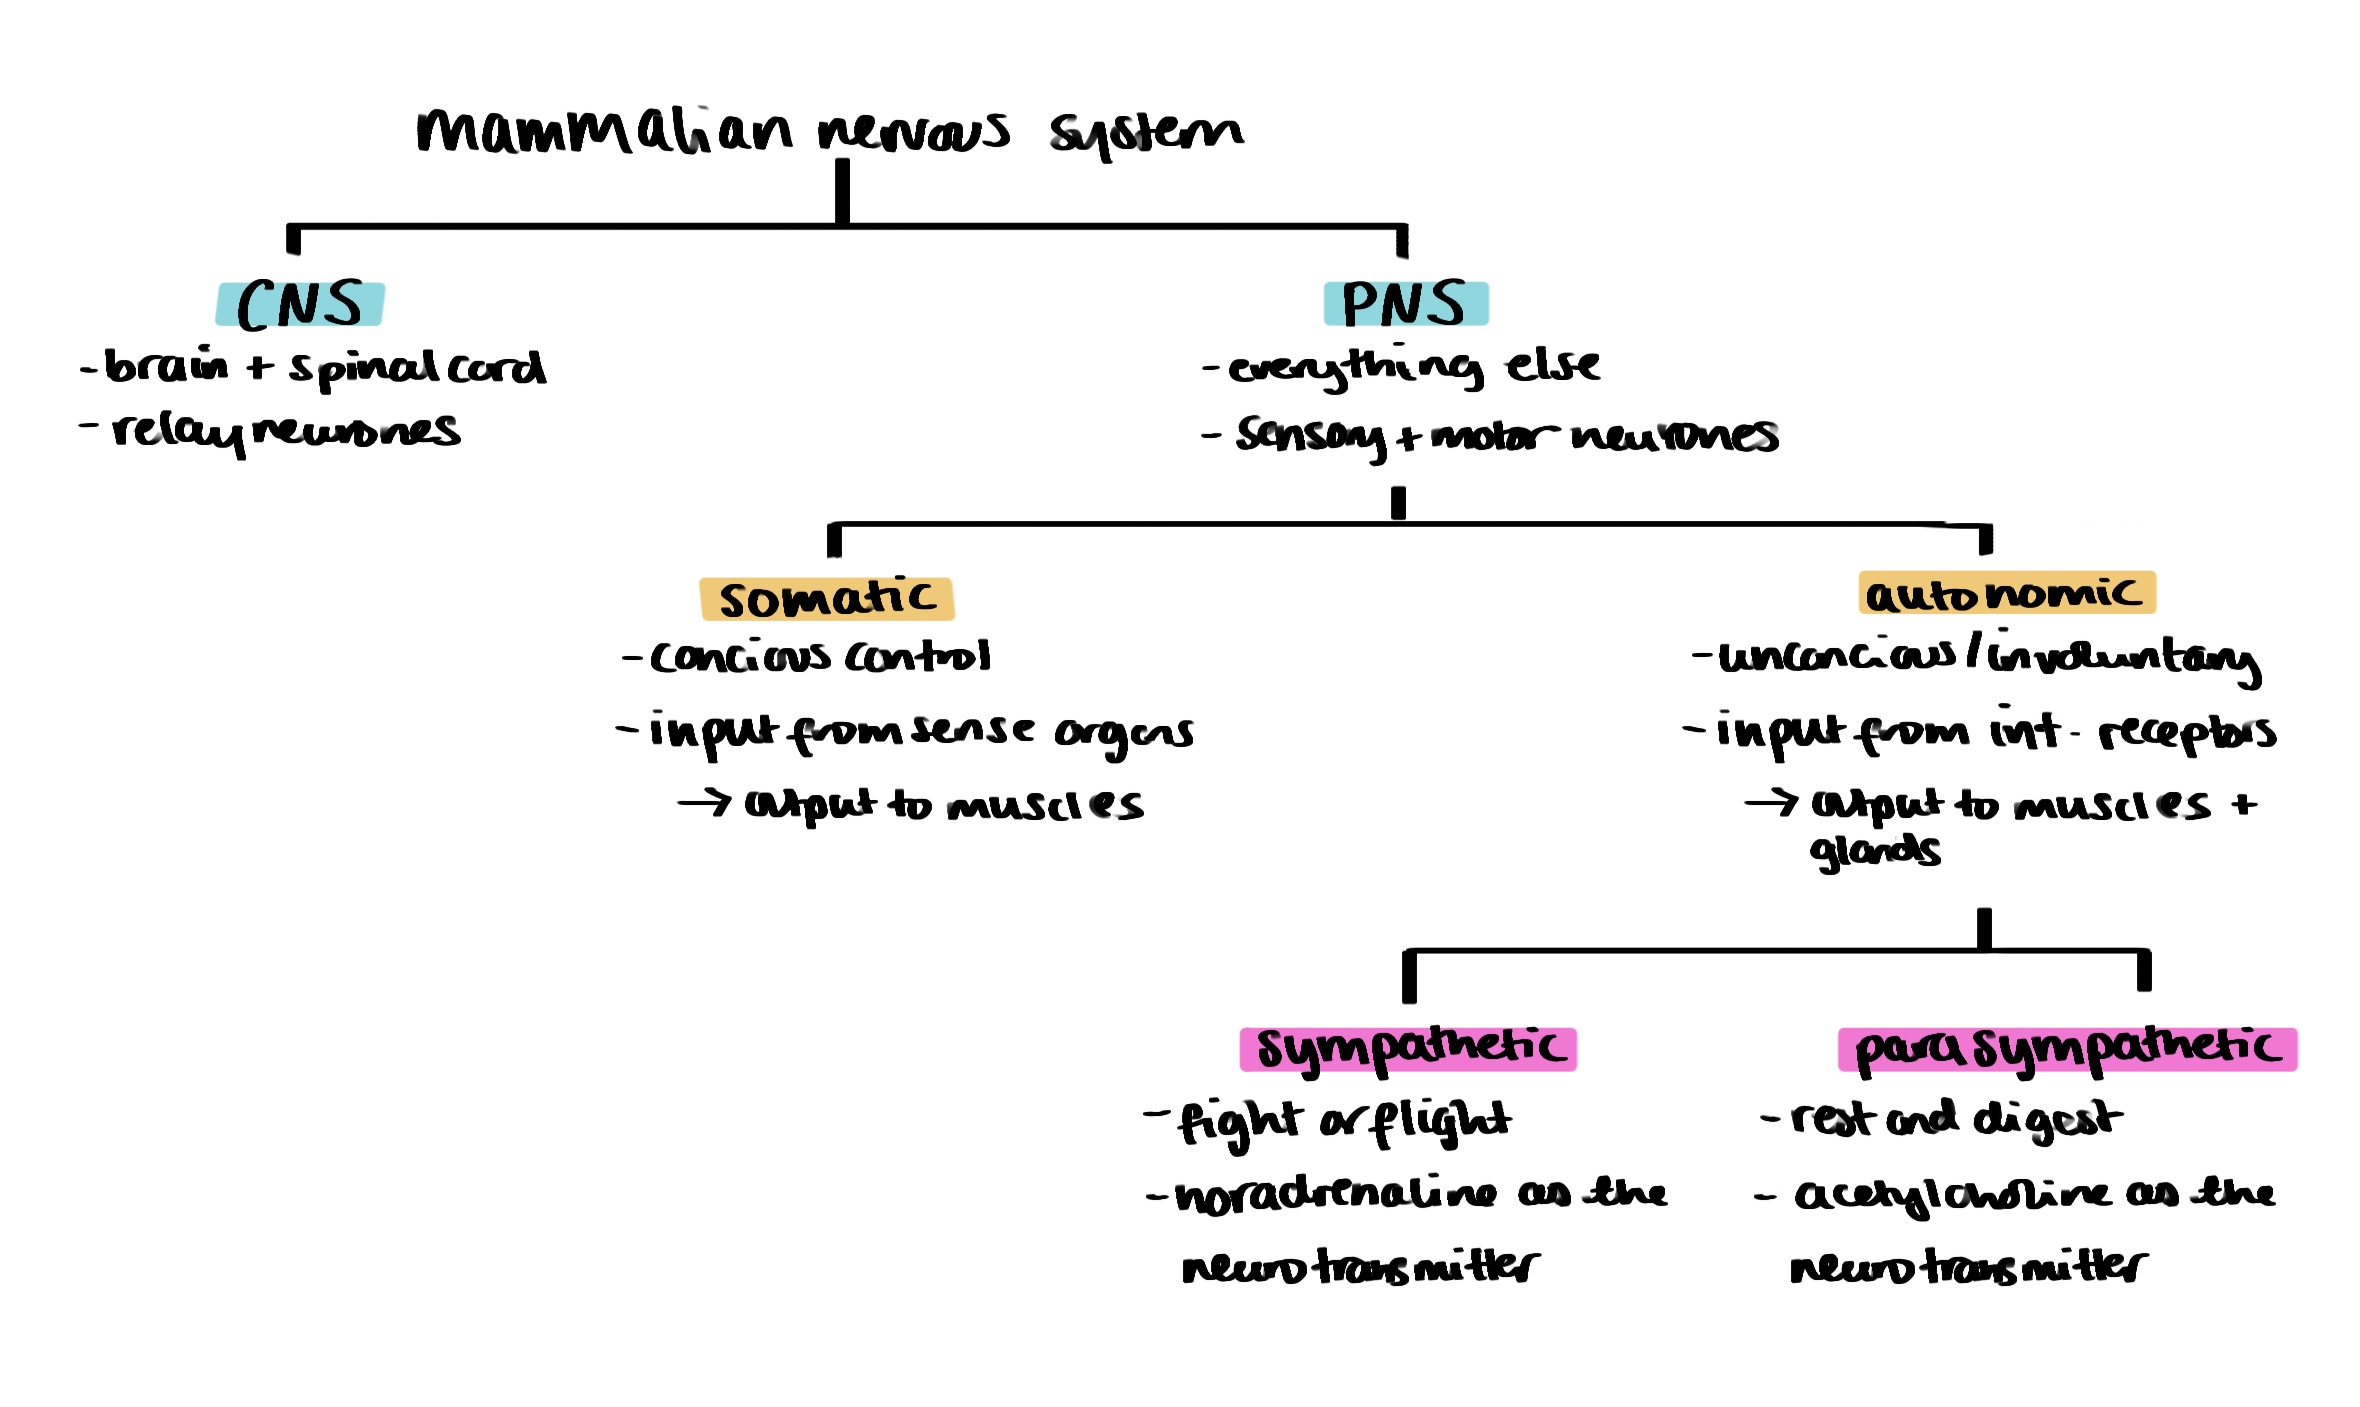 mammalian nervous system
CNS
- brain + spinal cord
- relay neurones
PNS
- everything else
- sensory + motor neurones
somatic
- concious control
- input from sense organs
→ output to muscles
autonomic
- unconcious / involuntary
- input from int. receptors
→ output to muscles +
glands
sympathetic
- fight or flight
- noradrenaline as the
neurotransmitter
parasympathetic
- rest and digest
- acetylcholine as the
neurotransmitter